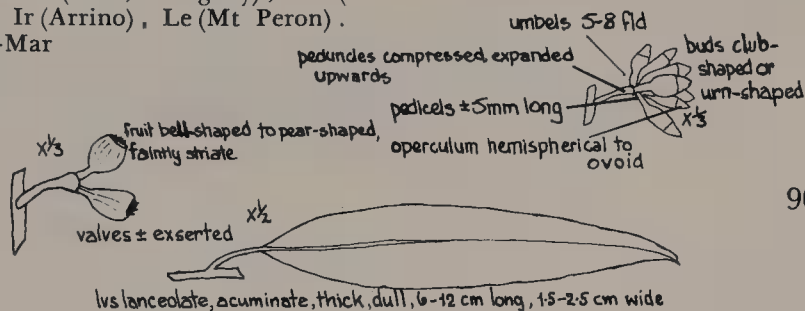 Ir (Arrino), Le (Mt Peron).
-Mar
umbels 5-8 fld
peduncles compressed, expanded
upwards
buds club-
shaped or
urn-shaped
pedicels ±5mm long
x⅓
operculum hemispherical to
ovoid
x⅓
fruit bell-shaped to pear-shaped,
faintly striate
valves ± exserted
x½
90
lvs lanceolate, acuminate, thick, dull, 6-12 cm long, 1·5-2·5 cm wide